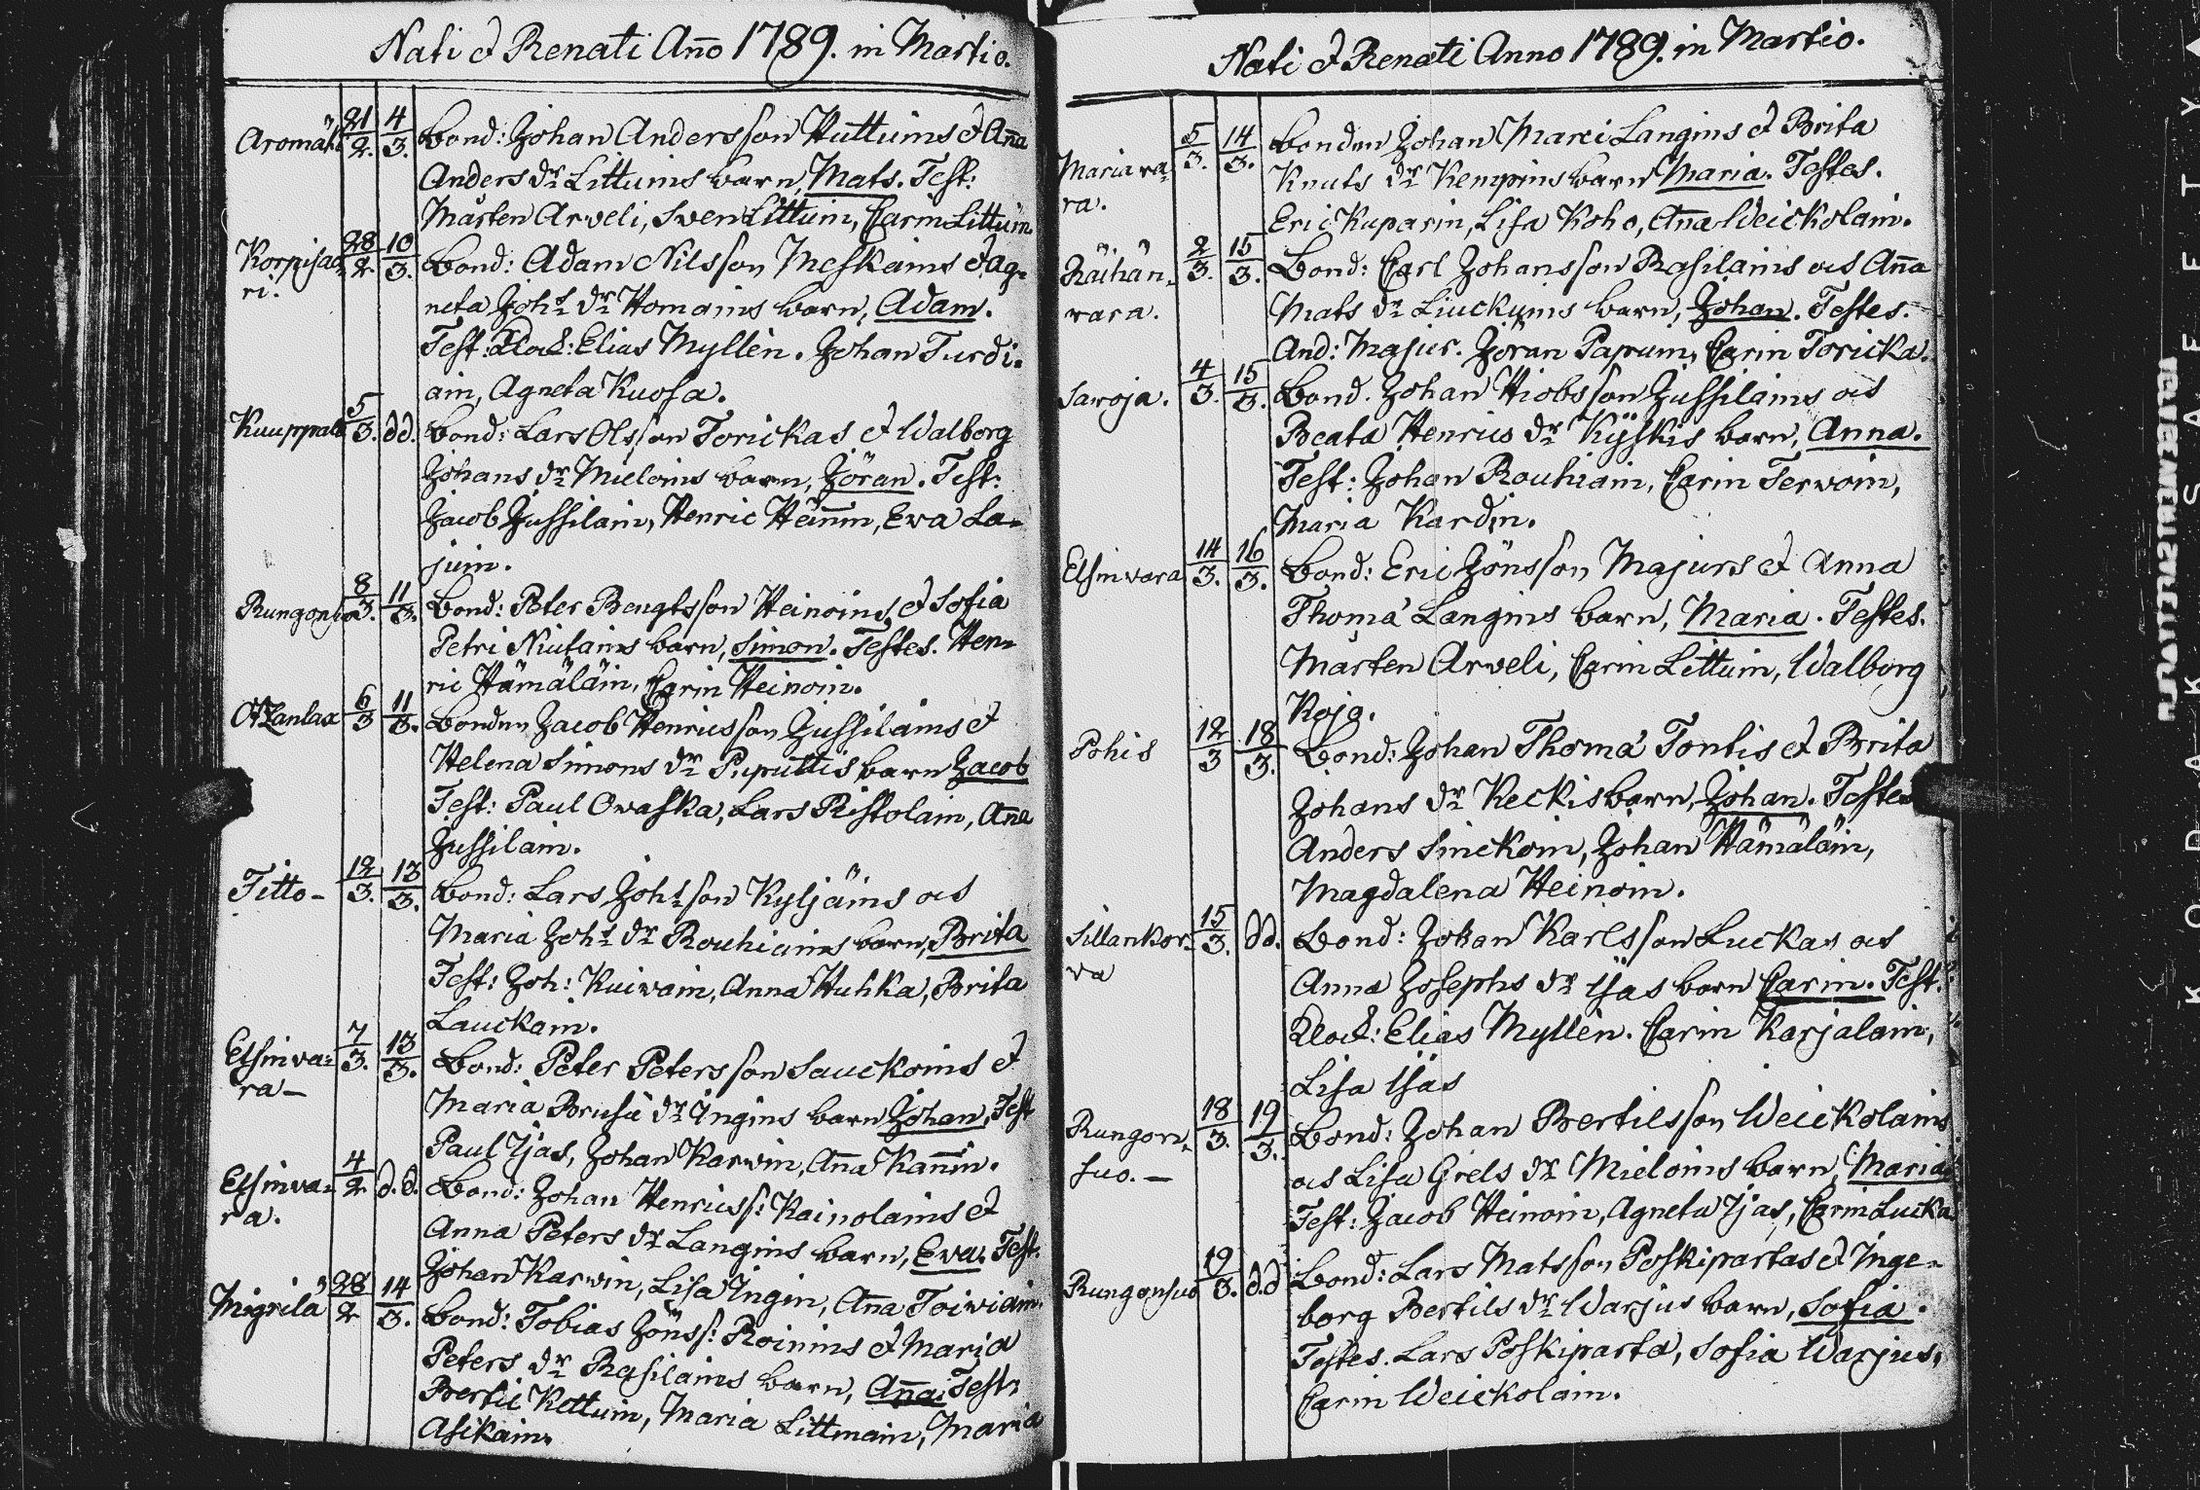 Nati & Renati Año 1789. in Martio.
Aromäki 21/2. 4/3. Bond: Johan Andersson Huttuins & Aña
Anders dr Littuins barn, Mats. Test:
Mårten Arveli, Sven Littuin, Carin Littuin.
Korpisaa- 28/2. 10/3. Bond: Adam Nilsson Meskains & Ag-
ri. neta Johs dr Homains barn, Adam.
Test: Klock: Elias Myllén. Johan Turdi-
ain, Agneta Kuosa.
Kuuppala 5/3. dd. Bond: Lars Olsson Torickas & Walborg
Johans dr Mieloins barn, Jöran. Test:
Jacob Jussilain, Henric Heinin, Eva La-
juin.
Rungonsuo 8/3. 11/3. Bond: Peter Bengtsson Heinoins & Sofia
Petri Niutains barn, Simon. Testes. Hen-
ric Hämäläin, Carin Heinoin.
6/3 11/3. Bonden Jacob Henricsson Jussilains &
Helena Simons dr Puputtis barn Jacob
Test: Paul Owaska, Lars Ristolain, Aña
Jussilain.
Titto- 12/3. 13/3. Bond: Lars Johsson Kyljäins och
Maria Johs dr Rouhiains barn, Brita
Test: Joh: Kuivain, Anna Huhka, Brita
Lauckain.
Elsinva- 7/3. 13/3. Bond: Peter Petersson Sauckoins &
ra- Maria Brusii dr Ingins barn Johan, Test
Paul Ijas, Johan Karvin, Aña Kañin.
Elsinva- 4/2 d.d. Bond: Johan Henricss: Kainolains &
ra. Anna Peters dr Langins barn, Eva. Test.
Johan Karvin, Lisa Ingin, Aña Toiviain.
Migrilä 28/2 14/3. Bond: Tobias Jönss: Roinins & Maria
Peters dr Rasilains barn, Aña. Test:
Bertil Kettuin, Maria Littmain, Maria
Asikain.
Nati & Renati Anno 1789. in Martio.
5/3. 14/3. Bonden Johan Marci Langins & Brita
Mariava- Knuts dr Kempins barn Maria. Testes.
ra. Eric Kuparin, Lisa Koho, Aña Weickolain.
Räihän- 2/3. 15/3. Bond: Carl Johansson Rasilains och Aña
vara. Mats dr Liuckuins barn, Johan. Testes.
And: Majur. Jöran Papuin, Carin Toricka.
Saroja. 4/3. 15/3. Bond. Johan Hiobsson Jussilains och
Beata Henrics dr Kÿskis barn, Anna.
Test: Johan Rouhiain, Carin Tervoin,
Maria Kardin.
Elsinvara 14/3. 16/3. Bond: Eric Jönsson Majurs & Anna
Thomæ Langins barn, Maria. Testes.
Mårten Arveli, Carin Littuin, Walborg
Kojo.
Pohis 12/3 18/3. Bond: Johan Thomæ Tontis & Brita
Johans dr Keckis barn, Johan. Testes
Anders Sinckoin, Johan Hämäläin,
Magdalena Heinoin.
Sillankor- 15/3. dd. Bond: Johan Karlsson Luckas och
va Anna Josephs dr Ijas barn Carin. Test:
Klock: Elias Myllén. Carin Karjalain,
Lisa Ijas
Rungon- 18/3. 19/3. Bond: Johan Bertilsson Weickolains
suo. - och Lisa Grels dr Mieloins barn, Maria
Test: Jacob Heinoin, Agneta Ijas, Carin Lucka
Rungonsuo 19/3. d.d Bond: Lars Matsson Poskipartas & Inge-
borg Bertils dr Warjus barn, Sofia.
Testes. Lars Poskiparta, Sofia Warjus,
Carin Weickolain.
KODAK SAFETY